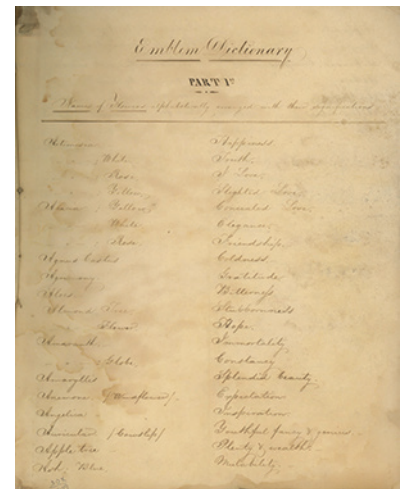 Emblem Dictionary
PART 1st
Names of Flowers alphabetically arranged with their significations
Happiness.
" White Youth.
" Rose I Love.
" Yellow Slighted Love.
Yellow Concealed Love.
" White Elegance.
" Rose Friendship.
Agnus Castus Coldness.
Agrimony Gratitude.
Aloes Bitterness
Almond Tree Stubbornness
" Flower Hope.
Amaranth Immortality
" Globe Constancy
Amaryllis Splendid beauty.
Anemone (Windflower) Expectation
Angelica Inspiration
Auricula (Cowslip) Youthful fancy & genius
Apple tree Plenty & wealth.
Blue Mutability.